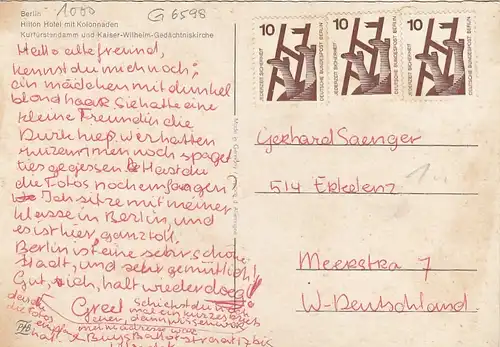 Berlin
Hilton Hotel mit Kolonnaden
Kurfürstendamm und Kaiser-Wilhelm-Gedächtniskirche
1000
G 6598
10
10
10
JEDERZEIT SICHERHEIT
DEUTSCHE BUNDESPOST BERLIN
JEDERZEIT SICHERHEIT
DEUTSCHE BUNDESPOST BERLIN
JEDERZEIT SICHERHEIT
DEUTSCHE BUNDESPOST BERLIN
Hallo alte freund,
kennst du mich noch?
ein mädchen mit dunkel
blond haar. Sie hatte eine
kleine Freundin die
hieß, wir hatten
zusammen noch spaget
ties gegessen. Hast du
die Fotos noch empfangen
Ich sitze mit meiner
klasse in Berlin, und
es ist hier, ganz toll.
Berlin ist eine sehr schöne
Stadt, und sehr gemütlich!
Gut, ich, halt wieder
Greet
Schickst du noch
mal ein kurzes
die fotos
hat
Gerhard Saenger
514 Erkelenz
1..
Meerstra 7
W-Deutschland